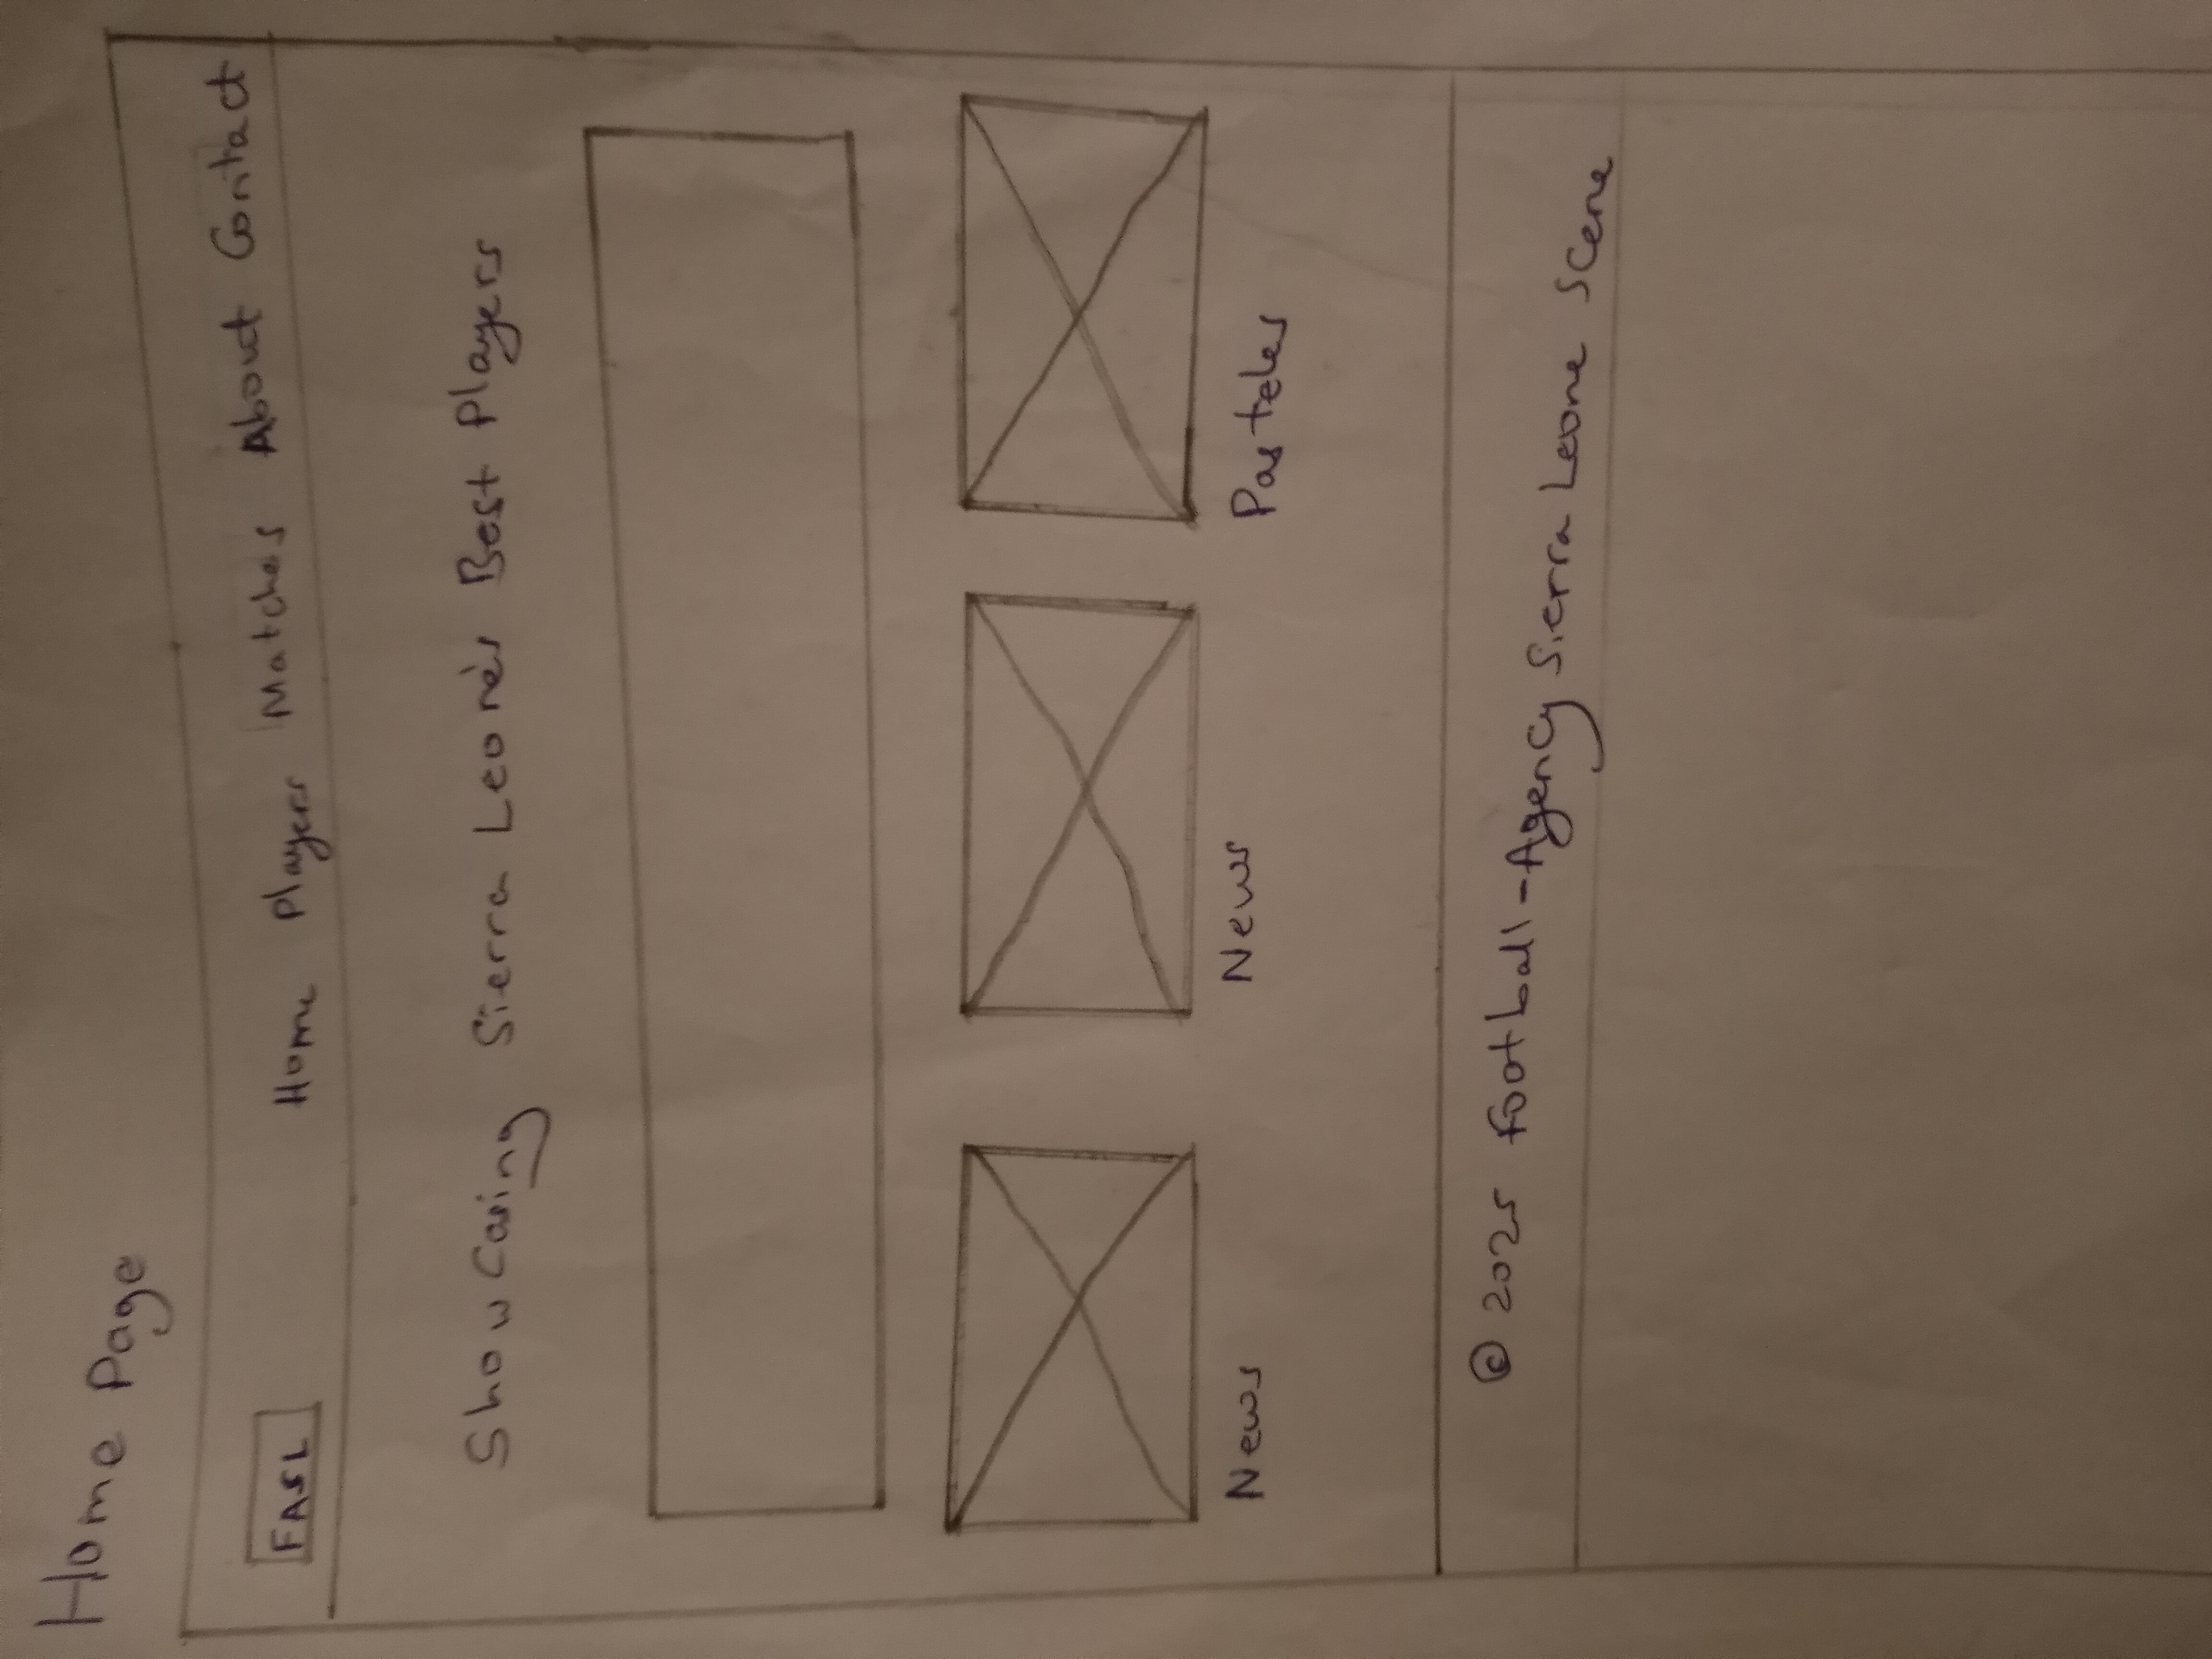 Home Page
FASL
Home Players Matches About Contact
Showcasing Sierra Leone's Best Players
News News Pasteles
© 2025 Football-Agency Sierra Leone Scene